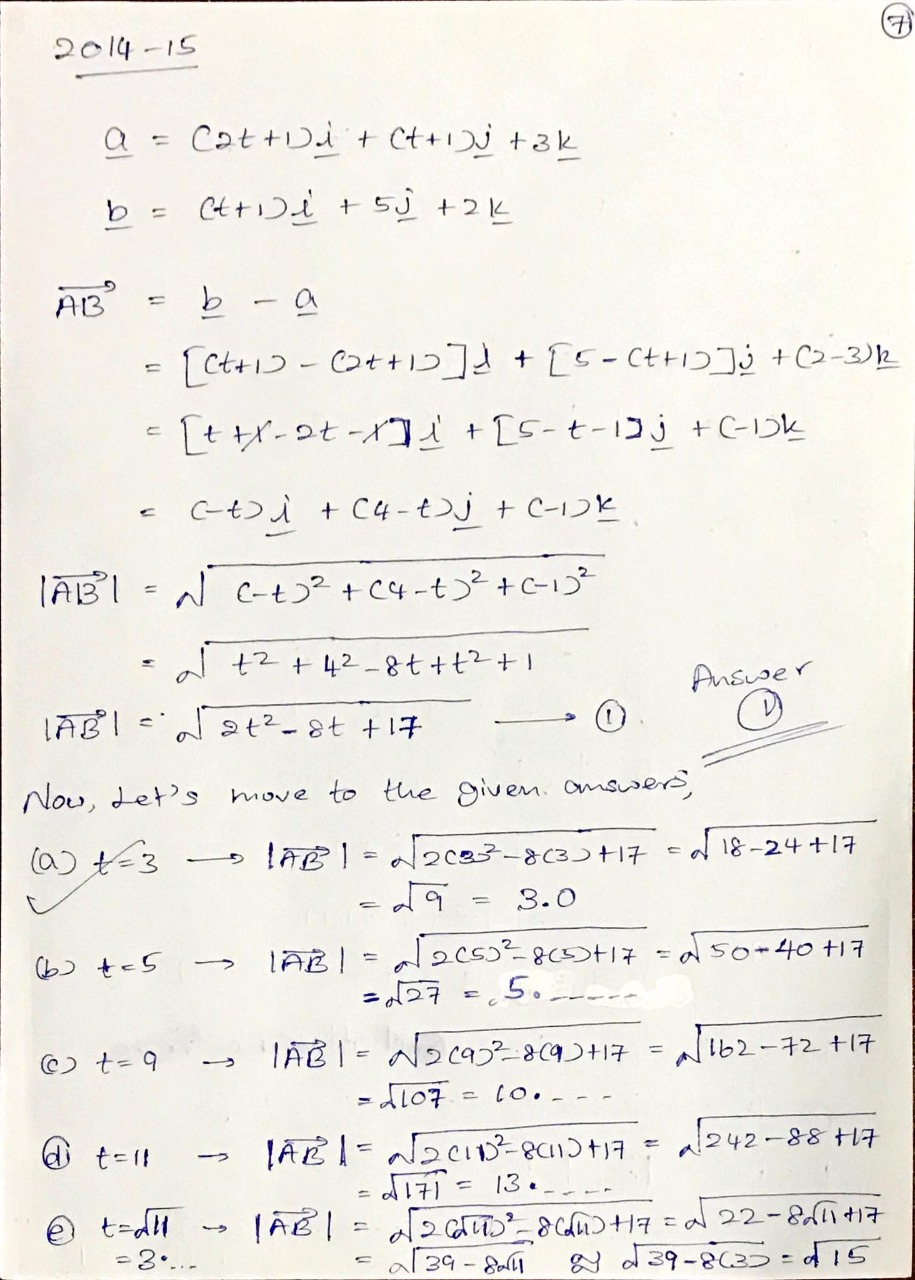 ⑦
2014-15
a = (2t+1)i + (t+1)j + 3k
b = (t+1)i + 5j + 2k
AB = b - a
= [(t+1) - (2t+1)]i + [5-(t+1)]j + (2-3)k
= [t+1-2t-1]i + [5-t-1]j + (-1)k
= (-t)i + (4-t)j + (-1)k
|AB| = √(-t)² + (4-t)² + (-1)²
= √t² + 4² - 8t + t² + 1
Answer
|AB| = √2t² - 8t + 17 → ① ①
Now, Let's move to the given answers,
(a) t=3 → |AB| = √2(3)²-8(3)+17 = √18-24+17
= √9 = 3.0
(b) t=5 → |AB| = √2(5)²-8(5)+17 = √50-40+17
= √27 = 5.-----
(c) t=9 → |AB| = √2(9)²-8(9)+17 = √162-72+17
= √107 = 10.---
(d) t=11 → |AB| = √2(11)²-8(11)+17 = √242-88+17
= √171 = 13.----
(e) t=√11 → |AB| = √2(√11)²-8(√11)+17 = √22-8√11+17
=3... = √39-8√11 √39-8(3) = √15